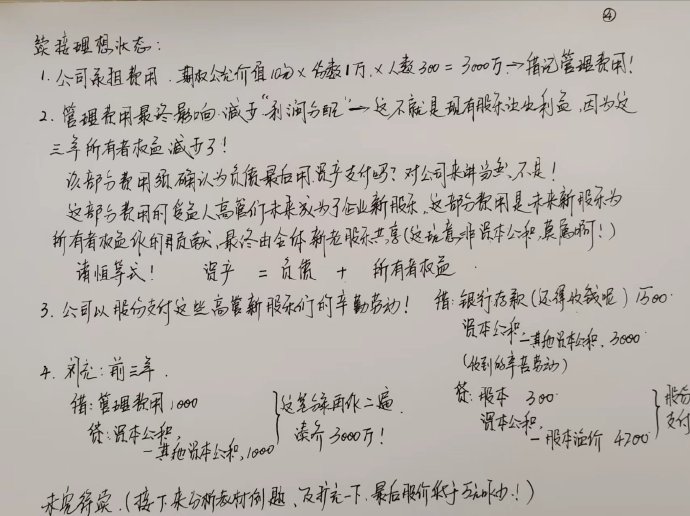 ④
续接理想状态：
1. 公司承担费用．期权公允价值10元×份数1万×人数300=3000万→借记管理费用！
2. 管理费用最终影响减少"利润分配"—这不就是现有股东让出利益，因为这
三年所有者权益减少了！
该部分费用须确认为负债最后用资产支付吗？对公司来讲当然不是！
这部分费用的受益人高管们未来成为了企业新股东，这部分费用是未来新股东为
所有者权益作的贡献，最终由全体新老股东共享（这玩意非资本公积，莫属啊！）
请恒等式！ 资产 = 负债 + 所有者权益
3. 公司以股份支付这些高管新股东们的辛勤劳动！
借：银行存款（还得收钱呢）1500
资本公积
—其他资本公积，3000
（收到的辛苦劳动）
贷：股本 300
资本公积，
—股本溢价 4200
股份
支付
4. 补充：前三年．
借：管理费用1000
贷：资本公积，
—其他资本公积，1000
这笔分录再作二遍
凑齐3000万！
未完待续．（接下来分析教材例题，及扩充一下，最后股价低于5元咋办！）